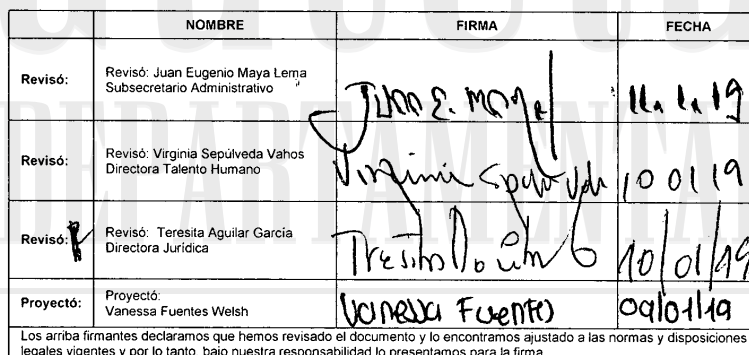 NOMBRE FIRMA FECHA
Revisó: Revisó: Juan Eugenio Maya Lema
Subsecretario Administrativo
Juan E. Maya L 11.1.19
Revisó: Revisó: Virginia Sepúlveda Vahos
Directora Talento Humano
Virginia Sepulveda 10 01 19
Revisó: Revisó: Teresita Aguilar García
Directora Jurídica
10/01/19
Proyectó: Proyectó:
Vanessa Fuentes Welsh
Vanessa Fuentes 09/01/19
Los arriba firmantes declaramos que hemos revisado el documento y lo encontramos ajustado a las normas y disposiciones
legales vigentes y por lo tanto, bajo nuestra responsabilidad lo presentamos para la firma.
DEPARTAMENTAL